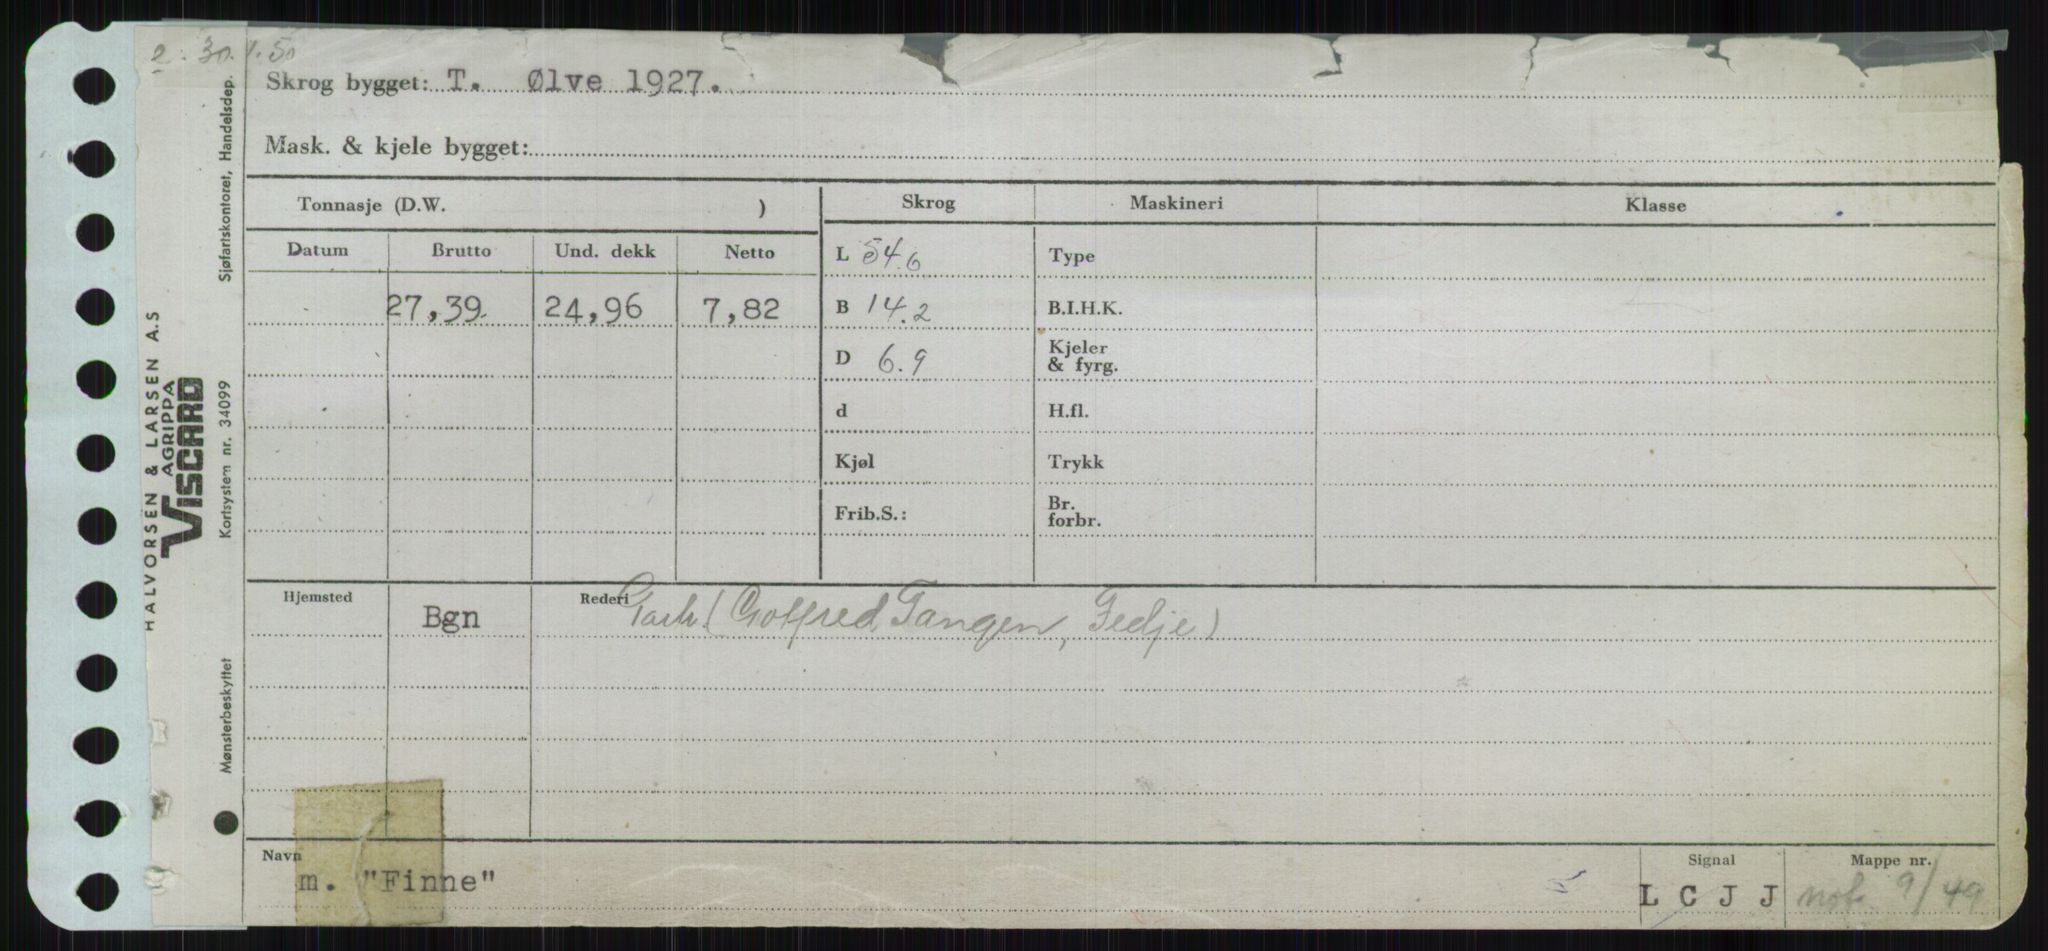 2. 30.1.50
Skrog bygget: T. Ølve 1927.
Mask. & kjele bygget:
Tonnasje (D.W. )
Skrog
Maskineri
Klasse
Datum Brutto Und. dekk Netto
27,39 24,96 7,82
L 54.6
B 14.2
D 6.9
d
Kjøl
Frib.S.:
Type
B.I.H.K.
Kjeler
& fyrg.
H.fl.
Trykk
Br.
forbr.
Hjemsted Rederi
Bgn (Gotfred Tangen, Fedje)
Navn
m. "Finne"
Signal
L C J J
Mappe nr.
not. 9/49
HALVORSEN & LARSEN A.S
AGRIPPA
VISCARD
Mønsterbeskyttet Kortsystem nr. 34099 Sjøfartskontoret, Handelsdep.